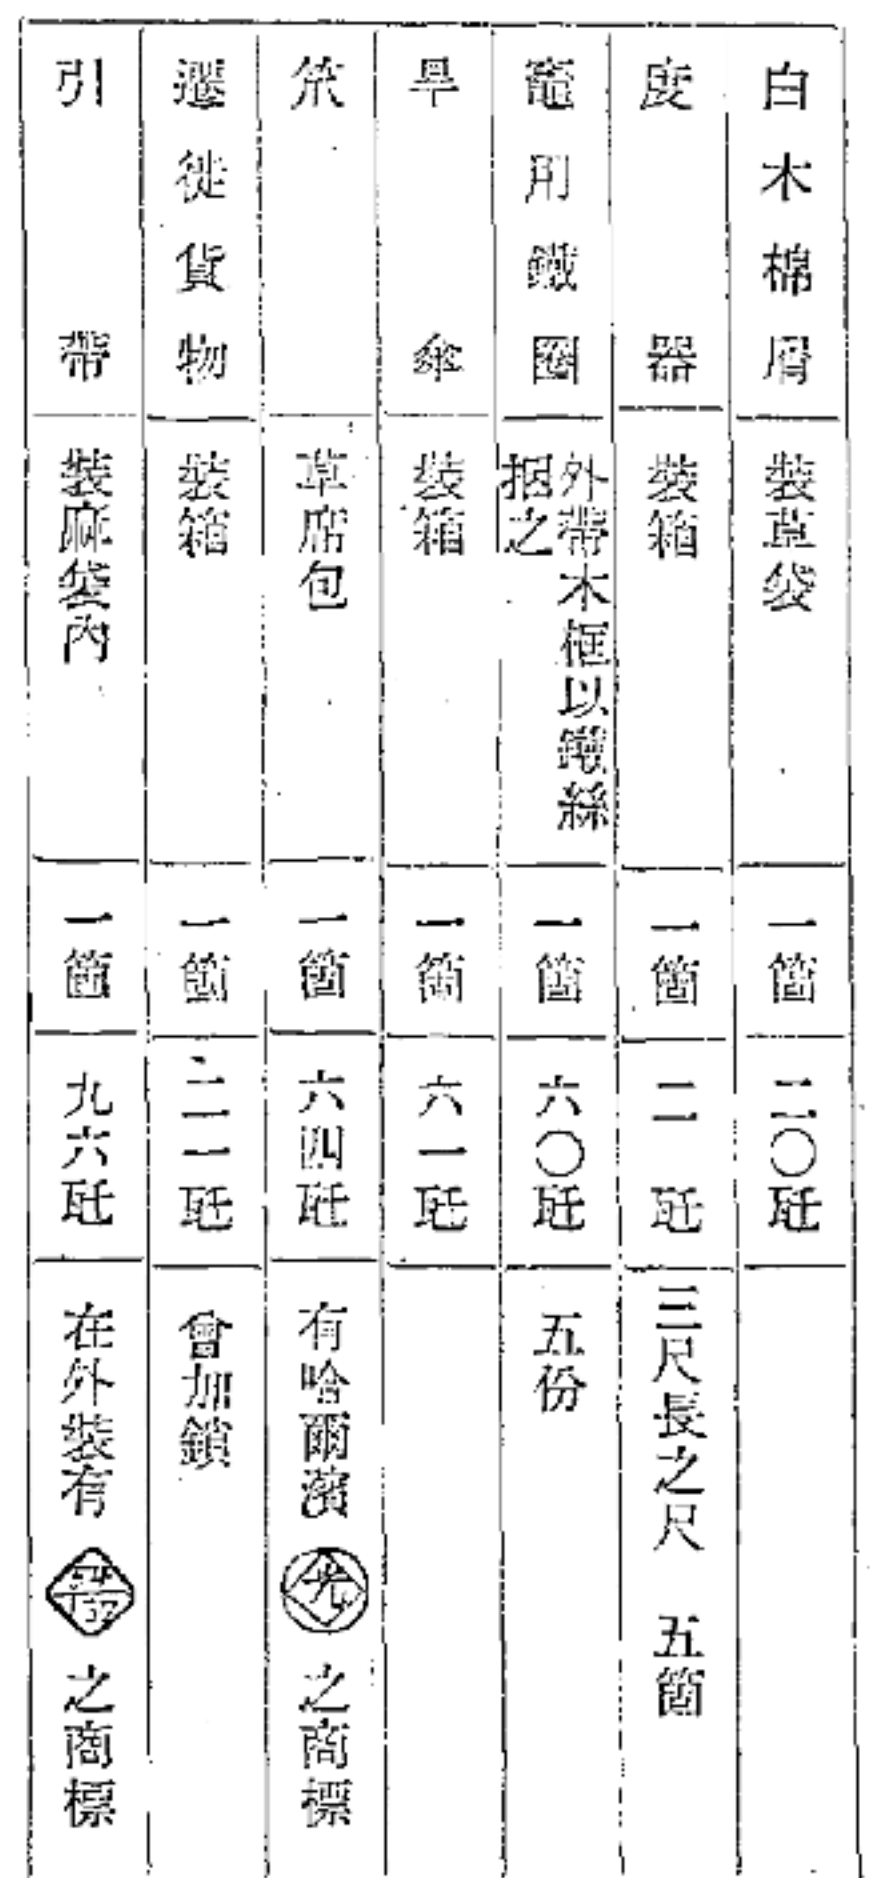 白木棉屑 裝草袋 一箇 二〇瓩
度器 裝箱 一箇 二瓩 三尺長之尺 五箇
竈用鐵圈 外帶木框以鐵絲
捆之 一箇 六〇瓩 五份
旱傘 裝箱 一箇 六一瓩
笊 草席包 一箇 六四瓩 有哈爾濱 光 之商標
遷徙貨物 裝箱 一箇 二一瓩 會加鎖
引帶 裝麻袋內 一箇 九六瓩 在外裝有 之商標